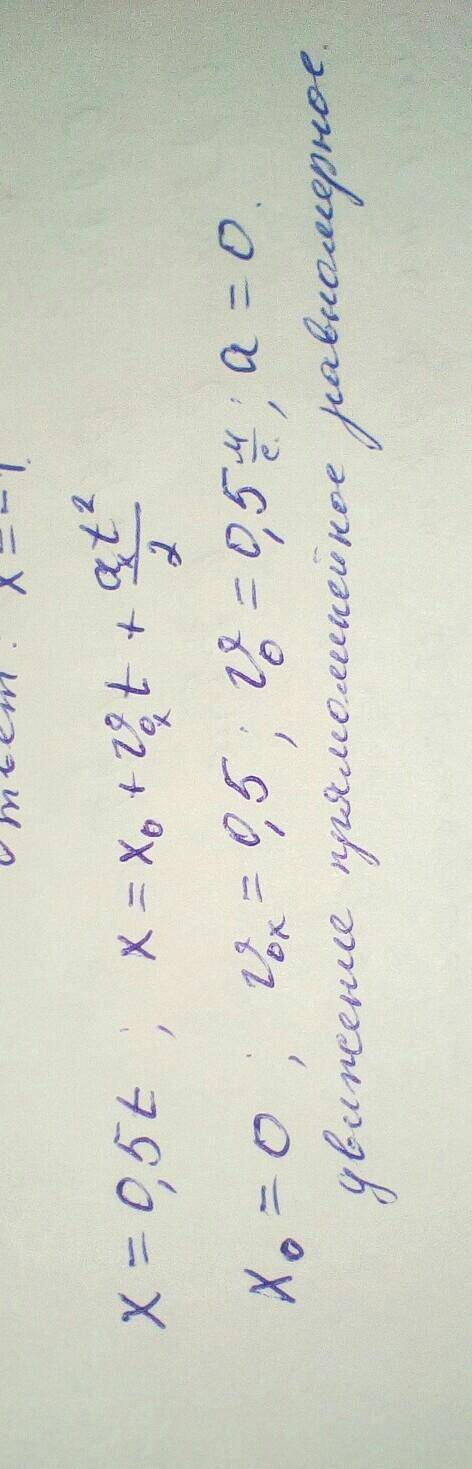 x = -1
x = 0,5t ; x = x₀ + v₀ₓt + aₓt²/2
x₀ = 0 ; v₀ₓ = 0,5 ; v₀ = 0,5 м/с ; a = 0.
движение прямолинейное равномерное.